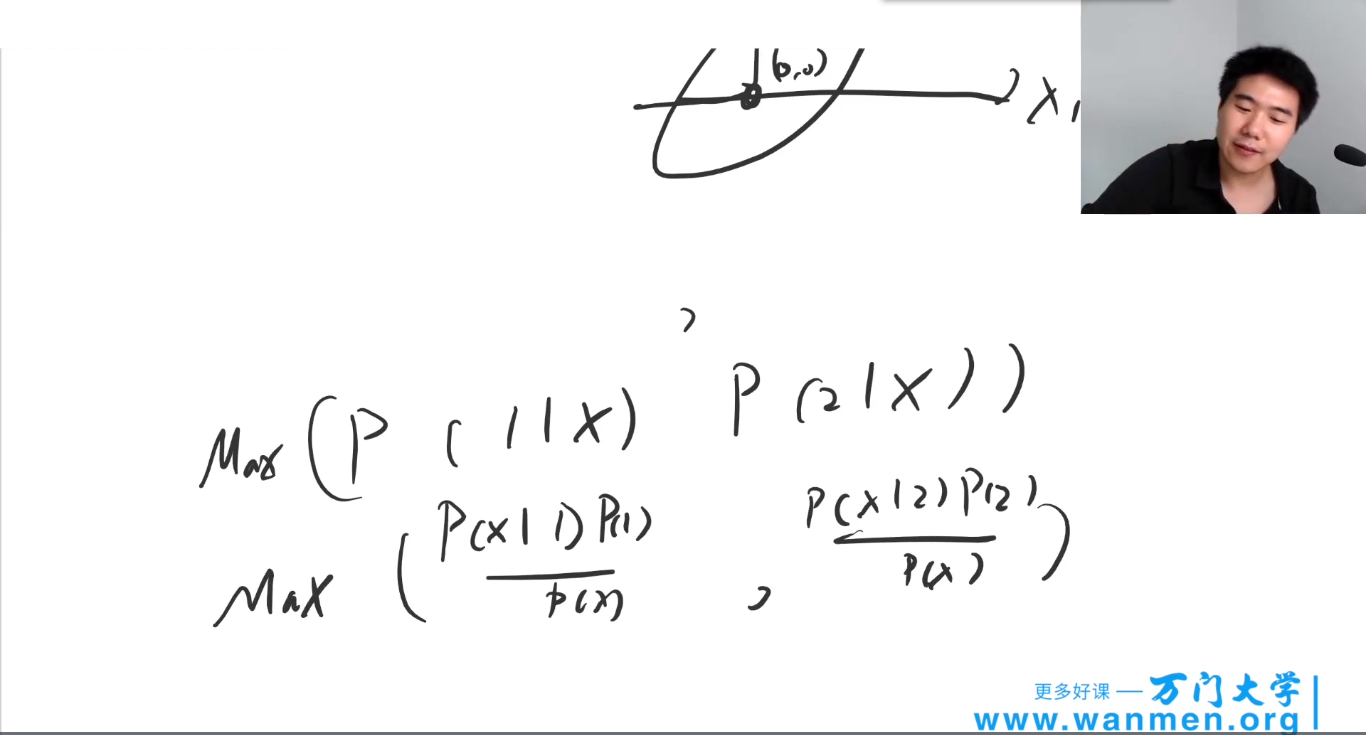 (0,0)
X1
,
Max(P(1|X) P(2|X))
Max(P(X|1)P(1)/P(X), P(X|2)P(2)/P(X))
更多好课 — 万门大学
www.wanmen.org